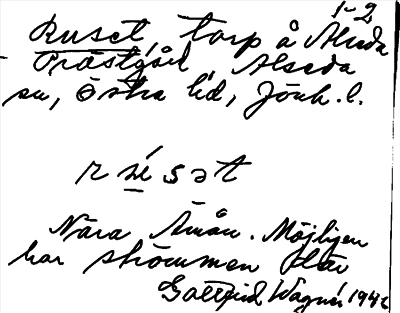 1-2
Ruset, torp å Alseda
Prästgård Alseda
sn, Östra hd, Jönk. l.
Nära Emån. Möjligen
har strömmen
Gottfrid Wagnér 1942